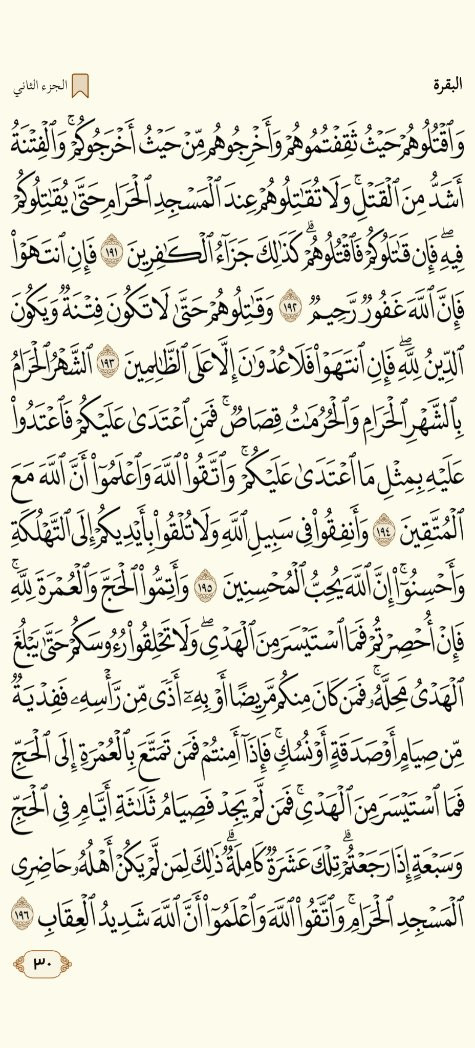 البقرة
الجزء الثاني
وَٱقۡتُلُوهُمۡ حَيۡثُ ثَقِفۡتُمُوهُمۡ وَأَخۡرِجُوهُم مِّنۡ حَيۡثُ أَخۡرَجُوكُمۡۚ وَٱلۡفِتۡنَةُ
أَشَدُّ مِنَ ٱلۡقَتۡلِۚ وَلَا تُقَٰتِلُوهُمۡ عِندَ ٱلۡمَسۡجِدِ ٱلۡحَرَامِ حَتَّىٰ يُقَٰتِلُوكُمۡ
فِيهِۖ فَإِن قَٰتَلُوكُمۡ فَٱقۡتُلُوهُمۡۗ كَذَٰلِكَ جَزَآءُ ٱلۡكَٰفِرِينَ ١٩١ فَإِنِ ٱنتَهَوۡاْ
فَإِنَّ ٱللَّهَ غَفُورٞ رَّحِيمٞ ١٩٢ وَقَٰتِلُوهُمۡ حَتَّىٰ لَا تَكُونَ فِتۡنَةٞ وَيَكُونَ
ٱلدِّينُ لِلَّهِۖ فَإِنِ ٱنتَهَوۡاْ فَلَا عُدۡوَٰنَ إِلَّا عَلَى ٱلظَّٰلِمِينَ ١٩٣ ٱلشَّهۡرُ ٱلۡحَرَامُ
بِٱلشَّهۡرِ ٱلۡحَرَامِ وَٱلۡحُرُمَٰتُ قِصَاصٞۚ فَمَنِ ٱعۡتَدَىٰ عَلَيۡكُمۡ فَٱعۡتَدُواْ
عَلَيۡهِ بِمِثۡلِ مَا ٱعۡتَدَىٰ عَلَيۡكُمۡۚ وَٱتَّقُواْ ٱللَّهَ وَٱعۡلَمُوٓاْ أَنَّ ٱللَّهَ مَعَ
ٱلۡمُتَّقِينَ ١٩٤ وَأَنفِقُواْ فِي سَبِيلِ ٱللَّهِ وَلَا تُلۡقُواْ بِأَيۡدِيكُمۡ إِلَى ٱلتَّهۡلُكَةِ
وَأَحۡسِنُوٓاْۚ إِنَّ ٱللَّهَ يُحِبُّ ٱلۡمُحۡسِنِينَ ١٩٥ وَأَتِمُّواْ ٱلۡحَجَّ وَٱلۡعُمۡرَةَ لِلَّهِۚ
فَإِنۡ أُحۡصِرۡتُمۡ فَمَا ٱسۡتَيۡسَرَ مِنَ ٱلۡهَدۡيِۖ وَلَا تَحۡلِقُواْ رُءُوسَكُمۡ حَتَّىٰ يَبۡلُغَ
ٱلۡهَدۡيُ مَحِلَّهُۥۚ فَمَن كَانَ مِنكُم مَّرِيضًا أَوۡ بِهِۦٓ أَذٗى مِّن رَّأۡسِهِۦ فَفِدۡيَةٞ
مِّن صِيَامٍ أَوۡ صَدَقَةٍ أَوۡ نُسُكٖۚ فَإِذَآ أَمِنتُمۡ فَمَن تَمَتَّعَ بِٱلۡعُمۡرَةِ إِلَى ٱلۡحَجِّ
فَمَا ٱسۡتَيۡسَرَ مِنَ ٱلۡهَدۡيِۚ فَمَن لَّمۡ يَجِدۡ فَصِيَامُ ثَلَٰثَةِ أَيَّامٖ فِي ٱلۡحَجِّ
وَسَبۡعَةٍ إِذَا رَجَعۡتُمۡۗ تِلۡكَ عَشَرَةٞ كَامِلَةٞۗ ذَٰلِكَ لِمَن لَّمۡ يَكُنۡ أَهۡلُهُۥ حَاضِرِي
ٱلۡمَسۡجِدِ ٱلۡحَرَامِۚ وَٱتَّقُواْ ٱللَّهَ وَٱعۡلَمُوٓاْ أَنَّ ٱللَّهَ شَدِيدُ ٱلۡعِقَابِ ١٩٦
٣٠